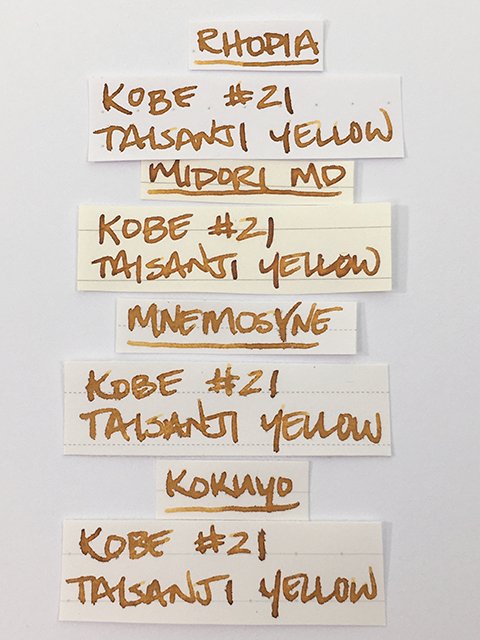 RHODIA
KOBE #21
TAISANJI YELLOW
MIDORI MD
KOBE #21
TAISANJI YELLOW
MNEMOSYNE
KOBE #21
TAISANJI YELLOW
KOKUYO
KOBE #21
TAISANJI YELLOW